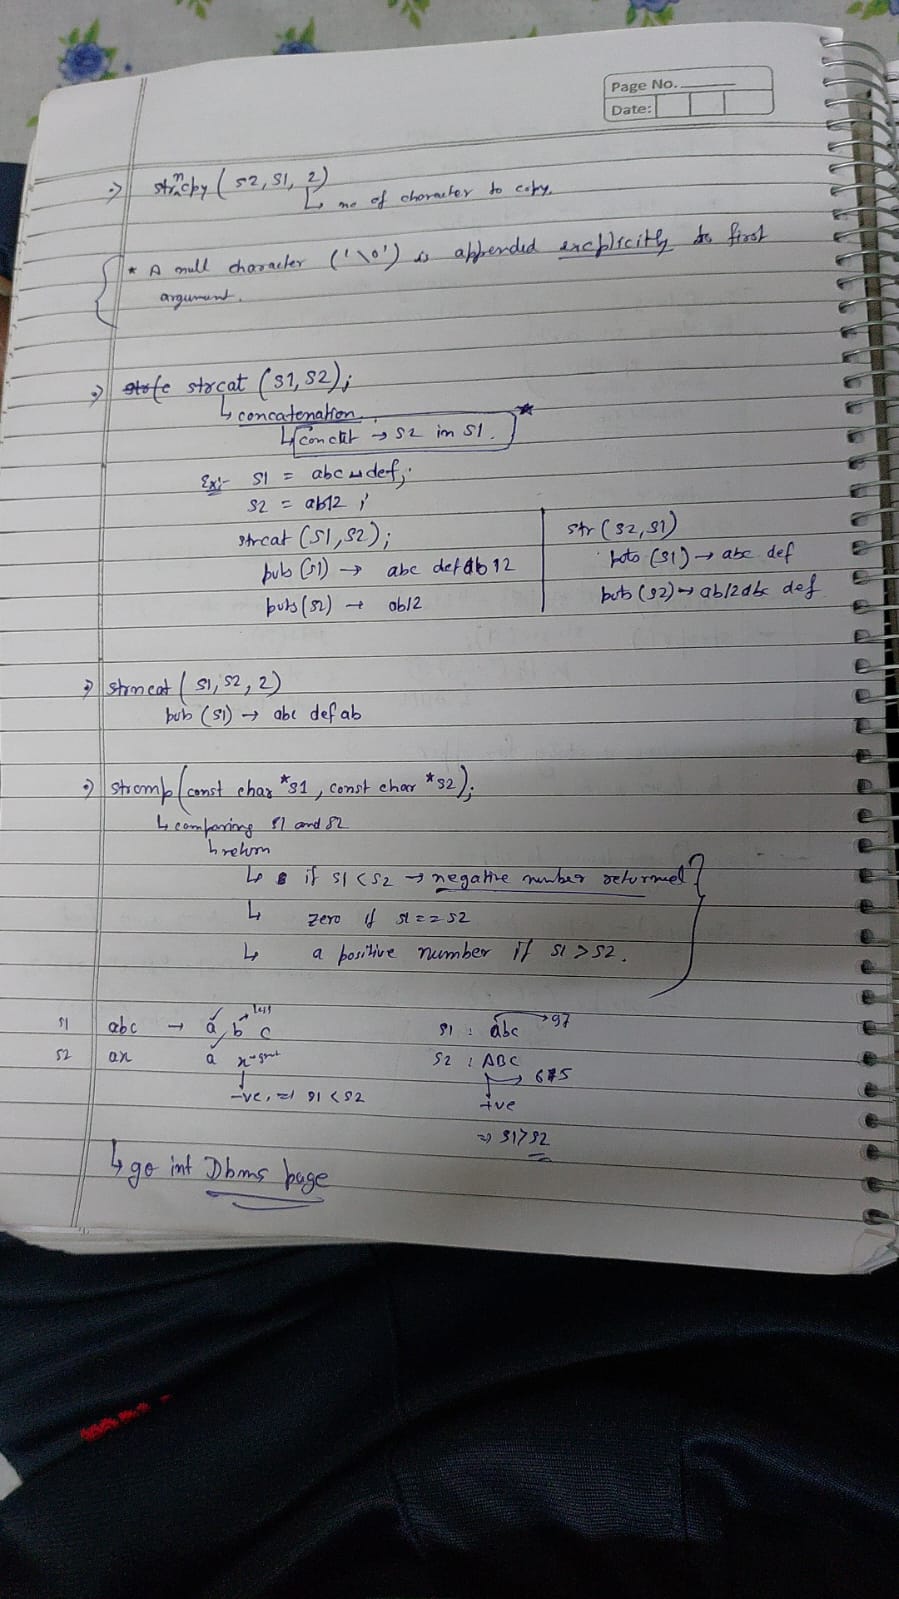 Page No.
Date:
=> strncpy (s2, s1, 2)
↳ no of character to copy.
* A null character ('\0') is appended excplicitly to first
argument.
=> strcat (s1, s2);
↳ concatenation.
↳ concat → s2 in s1. *
Ex:- s1 = abc ␣ def;
s2 = ab12;
strcat (s1, s2);
puts (s1) → abc defab12
puts (s2) → ab12
str (s2, s1)
puts (s1) → abc def
puts (s2) → ab12abc def
=> strncat (s1, s2, 2)
puts (s1) → abc defab
=> strcmp (const char *s1, const char *s2);
↳ comparing s1 and s2
↳ return
↳ if s1 < s2 → negative number returned
↳ zero if s1 == s2
↳ a positive number if s1 > s2.
s1 abc → a b c less
s2 ax a x
-ve, => s1 < s2
s1 : abc → 97
s2 : ABC
+ve
=> s1 > s2
↳ go int Dbms page